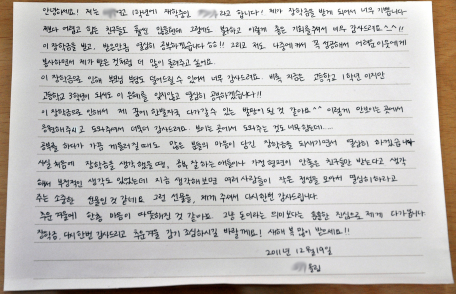 안녕하세요! 저는 고 1학년에 재학중인 라고 합니다! 제가 장학금을 받게 되어서 너무 기쁩니다.
저보다 어렵고 힘든 친구들도 많이 있을텐데 그럼에도 불구하고 이렇게 좋은 기회를 주셔서 너무 감사드려요 ^^!!
이 장학금을 받고, 앞으로 열심히 공부하겠습니다!! 그리고 저도 나중에 커서 꼭 성공해서 어려운 이웃에게
봉사하면서 제가 받은 것처럼 더 많이 돌려주고 싶어요.
이 장학금으로 인해 부모님 부담도 덜어드릴 수 있어서 너무 감사드려요. 비록 지금은 고등학교 1학년이지만
고등학교 3학년이 되서도 이 은혜를 잊지않고 열심히 공부하겠습니다!!
이 장학금으로 인해서 제 꿈에 한발자국 다가갈 수 있는 발판이 된 것 같아요^^ 이렇게 안보이는 곳에서
응원해주시고 도와주셔서 더욱더 감사드려요. 보이는 곳에서 도와주는 것도 너무 힘든데....
공부를 하다가 가끔 게을러질 때도 많은 분들의 마음이 담긴 장학금을 되새기면서 열심히 하겠습니다
사실 처음에 장학금을 생각했을 때, 공부 잘 하는 애들이나 가정 형편이 안좋은 친구들만 받는다고 생각
해서 부정적인 생각도 있었는데 지금 생각해보면 여러 사람들이 작은 정성을 모아서 열심히 하라고
주는 소중한 선물인 것 같네요. 그런 선물을, 제게 주셔서 다시한번 감사드립니다.
추운 겨울에 한층 마음이 따뜻해진 것 같아요. 그냥 돈이라는 의미보다는 훌륭한 진심으로 제게 다가옵니다
장학금, 다시한번 감사드리고 추운겨울 감기 조심하시길 바랄께요! 새해 복 많이 받으세요!!
2011년 12월 19일
올림